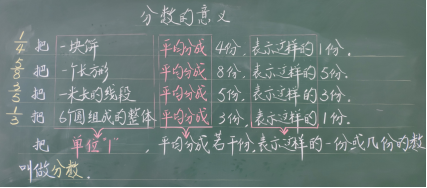 分数的意义
1/4 把 一块饼 平均分成 4份, 表示这样的 1份.
5/8 把 一个长方形 平均分成 8份, 表示这样的 5份.
3/5 把 一米长的线段 平均分成 5份, 表示这样的 3份.
1/3 把 6个圆组成的整体 平均分成 3份, 表示这样的 1份.
把 单位"1", 平均分成 若干份, 表示这样的一份或几份的数
叫做分数.